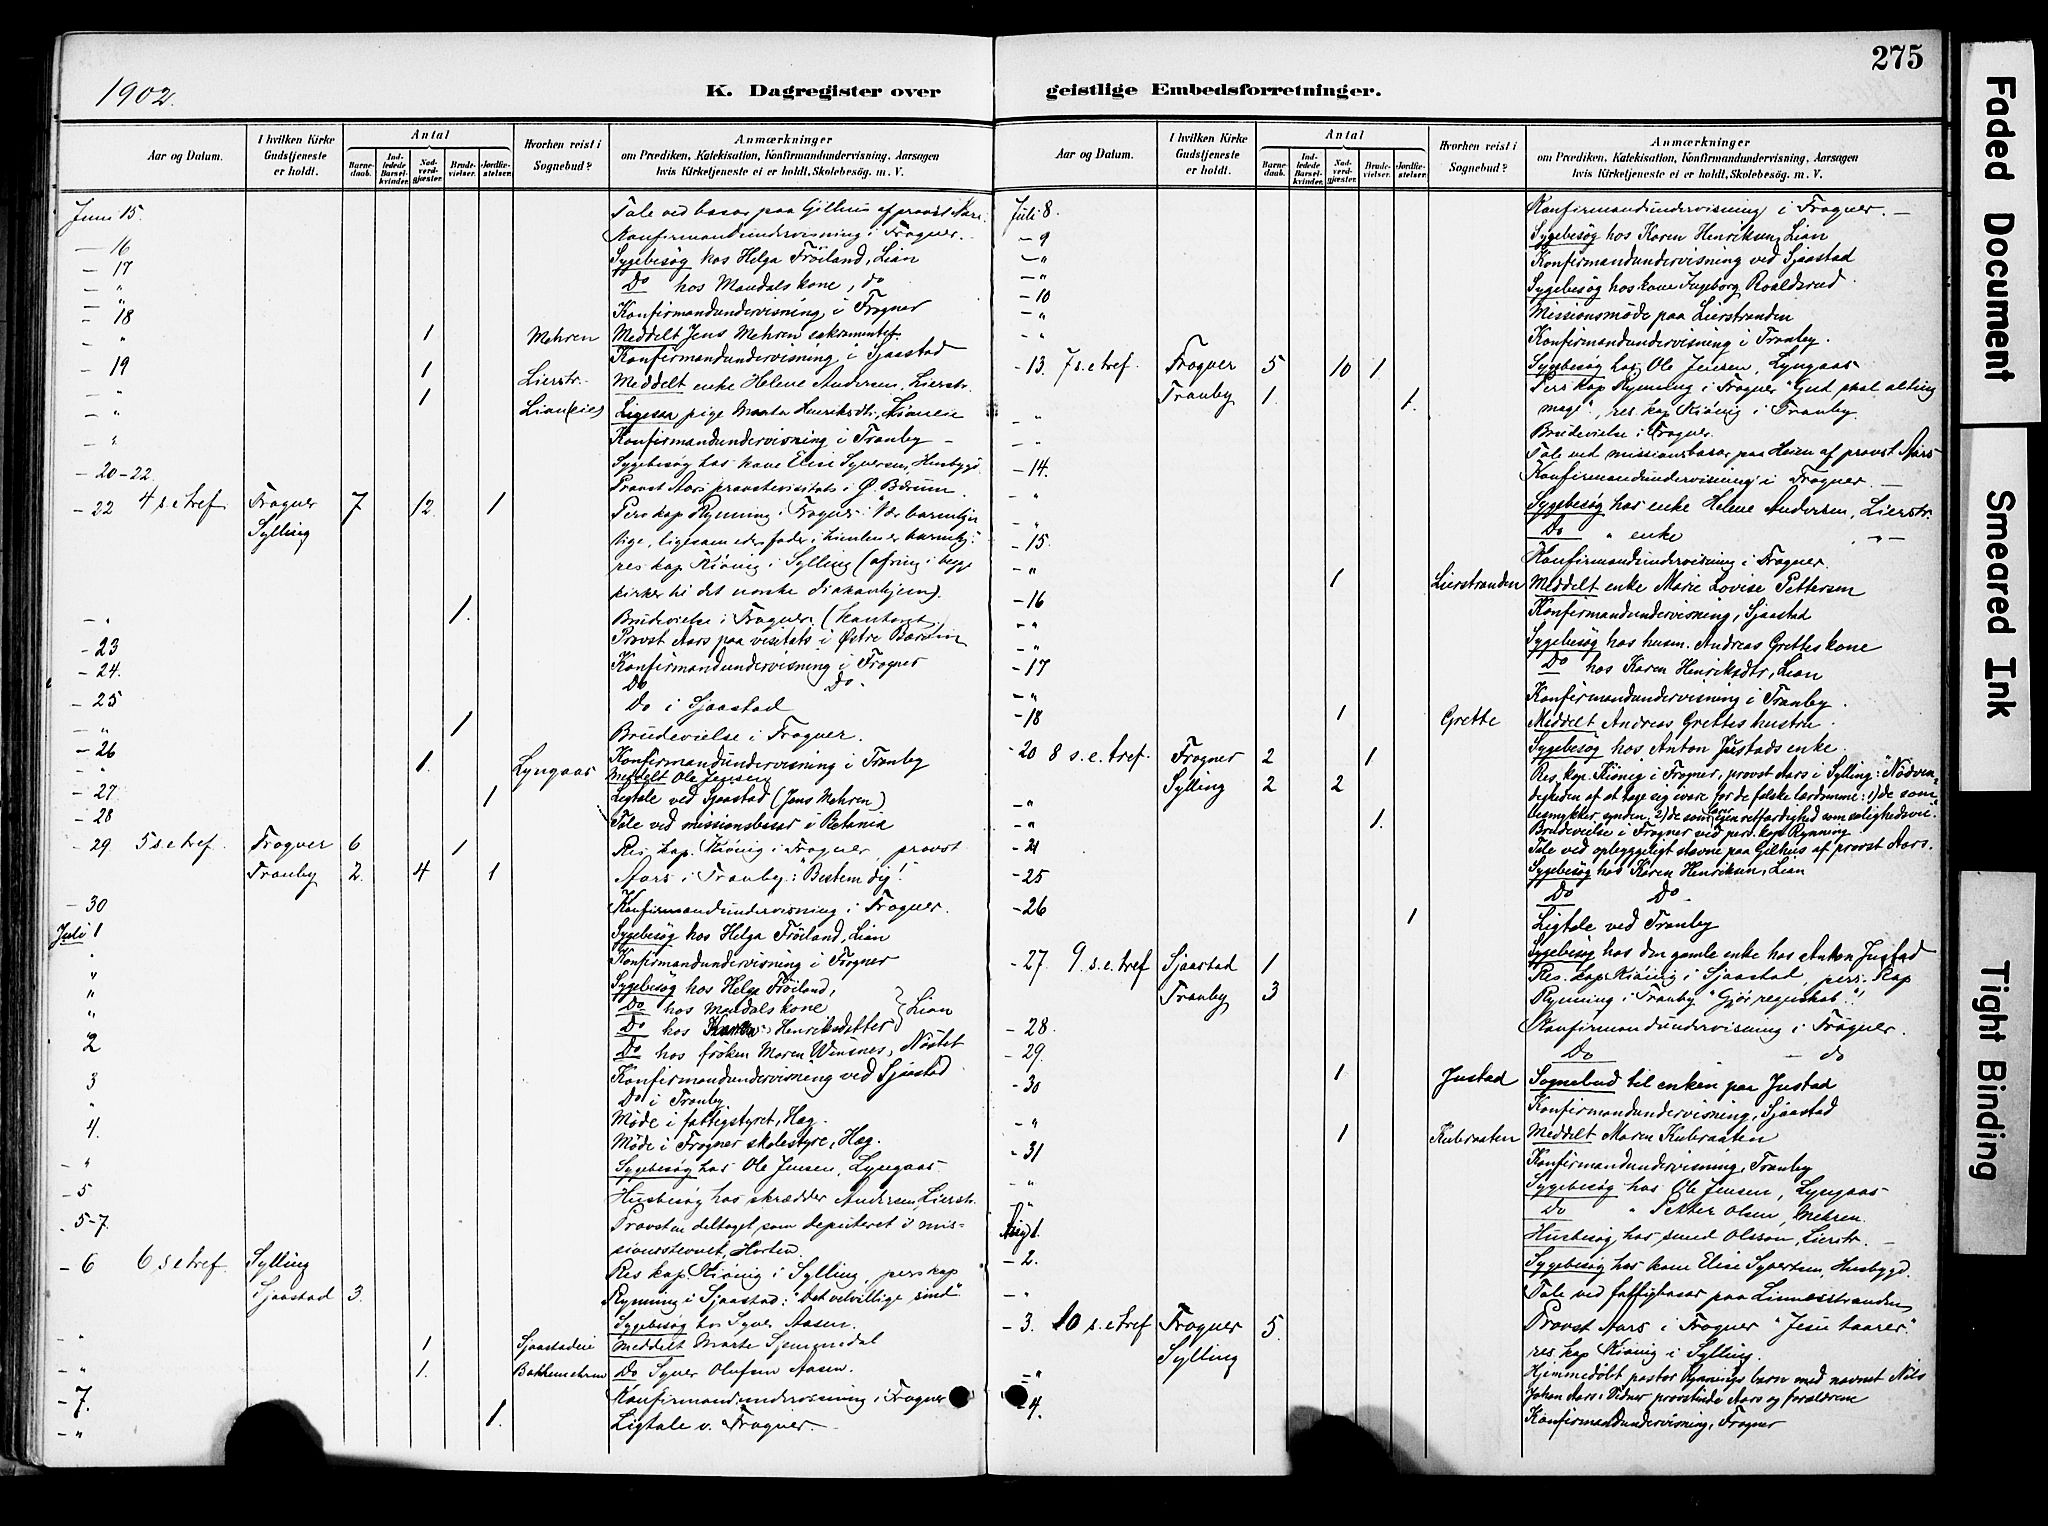 1902.
K. Dagregister over
Aar og Datum.
I hvilken Kirke Gudstjeneste er holdt.
Antal
Barne-daab.
Ind-ledede Barsel-kvinder.
Nad-verd-gjæster.
Brude-vielser.
Jordfæ-stelser.
Hvorhen reist i Sognebud?
Anmærkninger
om Prædiken, Katekisation, Konfirmandundervisning, Aarsagen
hvis Kirketjeneste ei er holdt, Skolebesøg. m. V.
Juni 15. Tale ved basar paa Gilhus af provst Aars.
Konfirmandundervisning i Frogner.
- 16 Sygebesøg hos Helga Fröiland, Lian
- 17 Do hos Mandals kone, do
- " Konfirmandundervisning i Frogner
- 18 1 Mehren Meddelt Jens Mehren sakramentet.
- " Konfirmandundervisning i Sjaastad
- 19 1 Lierstr. Meddelt enke Helene Andersen, Lierstr.
- " 1 Lian(eie) Ligesaa pige Marta Henriksdtr, Lianeie
- " Konfirmandundervisning i Tranby -
- " Sygebesøg hos kone Elise Syversen, Husbygd.
- 20-22 Provst Aars provstevisitats i Ø. Bærum.
- 22 4 s. e tref Frogner 7 12 1 Pers kap Rynning i Frogner: "Vær barmhjer
Sylling tige, ligesom eders fader i himlen er barmhj."
res kap Kiönig i Sylling (ofring i begge
kirker til det norske diakonhjem).
- " 1. Brudevielse i Frogner. (kontoret)
- 23 Provst Aars paa visitats i Østre Bærum
- 24. Konfirmandundervisning i Frogner
Do Do.
- 25 Do i Sjaastad
- " 1 Brudevielse i Frogner.
- 26 1. Lyngaas Konfirmandundervisning i Tranby
- " Meddelt Ole Jensen
- 27 1 Ligtale ved Sjaastad (Jens Mehren)
- 28 Tale ved missionsbasar i Betania
- 29 5 s. e tref. Frogner 6 1 Res. kap. Kiönig i Frogner, provst
Tranby 2. 4 1 Aars i Tranby: "Bestem dig!"
- 30 Konfirmandundervisning i Frogner.
Juli 1 Sygebesøg hos Helga Fröiland, Lian
" Konfirmandundervisning i Frogner
" Sygebesøg hos Helga Fröiland,
" Do hos Mandals kone } Lian
" Do hos Henriksdatter
2 Do hos fröken Maren Winsnes, Nöstet
Konfirmandundervisning ved Sjaastad
3 Do i Tranby
" Möde i fattigstyret, Hag.
4. Möde i Frogner skolestyre, Hag.
- " Sygebesøg hos Ole Jensen, Lyngaas.
- 5 Husbesøg hos skrædder Andersen, Lierstr.
- 5-7. Provsten deltaget som deputeret i mis-
sionsstevnet, Horten.
- 6 6 s. e tref. Sylling Res kap. Kiönig i Sylling, pers kap
Sjaastad 3. Rynning i Sjaastad: "Det velvillige sind".
Sygebesøg hos Syver Aasen.
- " 1 Sjaastadeie Meddelt Marte
- " 1. Bakkemehren Do Syver Olufsen Aasen.
- 7. Konfirmandundervisning i Frogner
- " 1. Ligtale v. Frogner.
275
geistlige Embedsforretninger.
Aar og Datum.
I hvilken Kirke Gudstjeneste er holdt.
Antal
Barne-daab.
Ind-ledede Barsel-kvinder.
Nad-verd-gjæster.
Brude-vielser.
Jordfæ-stelser.
Hvorhen reist i Sognebud?
Anmærkninger
om Prædiken, Katekisation, Konfirmandundervisning, Aarsagen
hvis Kirketjeneste ei er holdt, Skolebesøg. m. V.
Juli 8. Konfirmandundervisning i Frogner. -
- 9 Sygebesøg hos Karen Henriksen, Lian
- " Konfirmandundervisning ved Sjaastad
- " Sygebesøg hos kone Ingeborg Roaldsrud
- 10 Missionsmöde paa Lierstranden
- " Konfirmandundervisning i Tranby.
- 13. 7 s. e tref. Frogner 5 10 1 Sygebesøg hos Ole Jensen, Lyngaas
Tranby 1. 1. Pers kap Rynning i Frogner "Gud skal alting
mage", res. kap Kiönig i Tranby.
- " Brudevielse i Frogner.
- " Tale ved missionsbasar paa Heien af provst Aars
- 14. Konfirmandundervisning i Frogner. -
- " Sygebesøg hos enke Helene Andersen, Lierstr.
- " Do " enke - " -
- 15. Konfirmandundervisning i Frogner.
- " 1 Lierstranden Meddelt enke Marie Lovise Pettersen
- 16 Konfirmandundervisning, Sjaastad
- " Sygebesøg hos husm. Andreas Grettes kone
- " Do hos Karen Henriksdtr, Lian
- 17 Konfirmandundervisning i Tranby.
- 18 1 Grette Meddelt Andreas Grettes hustru.
Sygebesøg hos Anton Justads enke.
- 20 8 s. e. tref. Frogner 2 1 Res. kap. Kiönig i Frogner, provst Aars i Sylling: "Nödven-
Sylling 2 2 digheden af at tage sig ivare for de falske lærdomme: 1) de som
- " besmykker synden. 2) de som lærer egenretfærdighed som salighedsvei."
- " 1. Brudevielse i Frogner ved pers. kap Rynning.
- 21 Tale ved opbyggeligt stevne paa Gilhus af provst Aars.
- 25 Sygebesøg hos Karen Henriksen, Lian
Do Do.
- 26 1 Ligtale ved Tranby
Sygebesøg hos den gamle enke hos Anton Justad
- 27. 9. s. e. tref Sjaastad 1 Res. kap. Kiönig i Sjaastad, pers. kap
Tranby 3 Rynning i Tranby "Gjör regnskab"!
- 28. Konfirmandundervisning i Frogner.
- 29. Do - do
- 30 1 Justad Sognebud til enken paa Justad
- " Konfirmandundervisning, Sjaastad
- 31 1 Kubraaten Meddelt Maren Kubraaten
- " Konfirmandundervisning, Tranby
- " Sygebesøg hos Ole Jensen, Lyngaas
Do " Petter Olsen, Mehren.
Aug 1. Husbesøg hos smed Olsson, Lierstr. -
- 2. Sygebesøg hos kone Elise Syvertsen, Husbygd.
- " Tale ved fattigbasar paa Linnesstranden
- 3. 10 s. e tref Frogner 5. Provst Aars i Frogner "Jesu taarer."
Sylling res. kap Kiönig i Sylling.
- " Hjemmedöbt pastor Rynnings barn med navnet Nils
Johan Aars: Vidner provstinde Aars og forældrene
- 4. Konfirmandundervisning, Frogner
Faded Document
Smeared Ink
Tight Binding